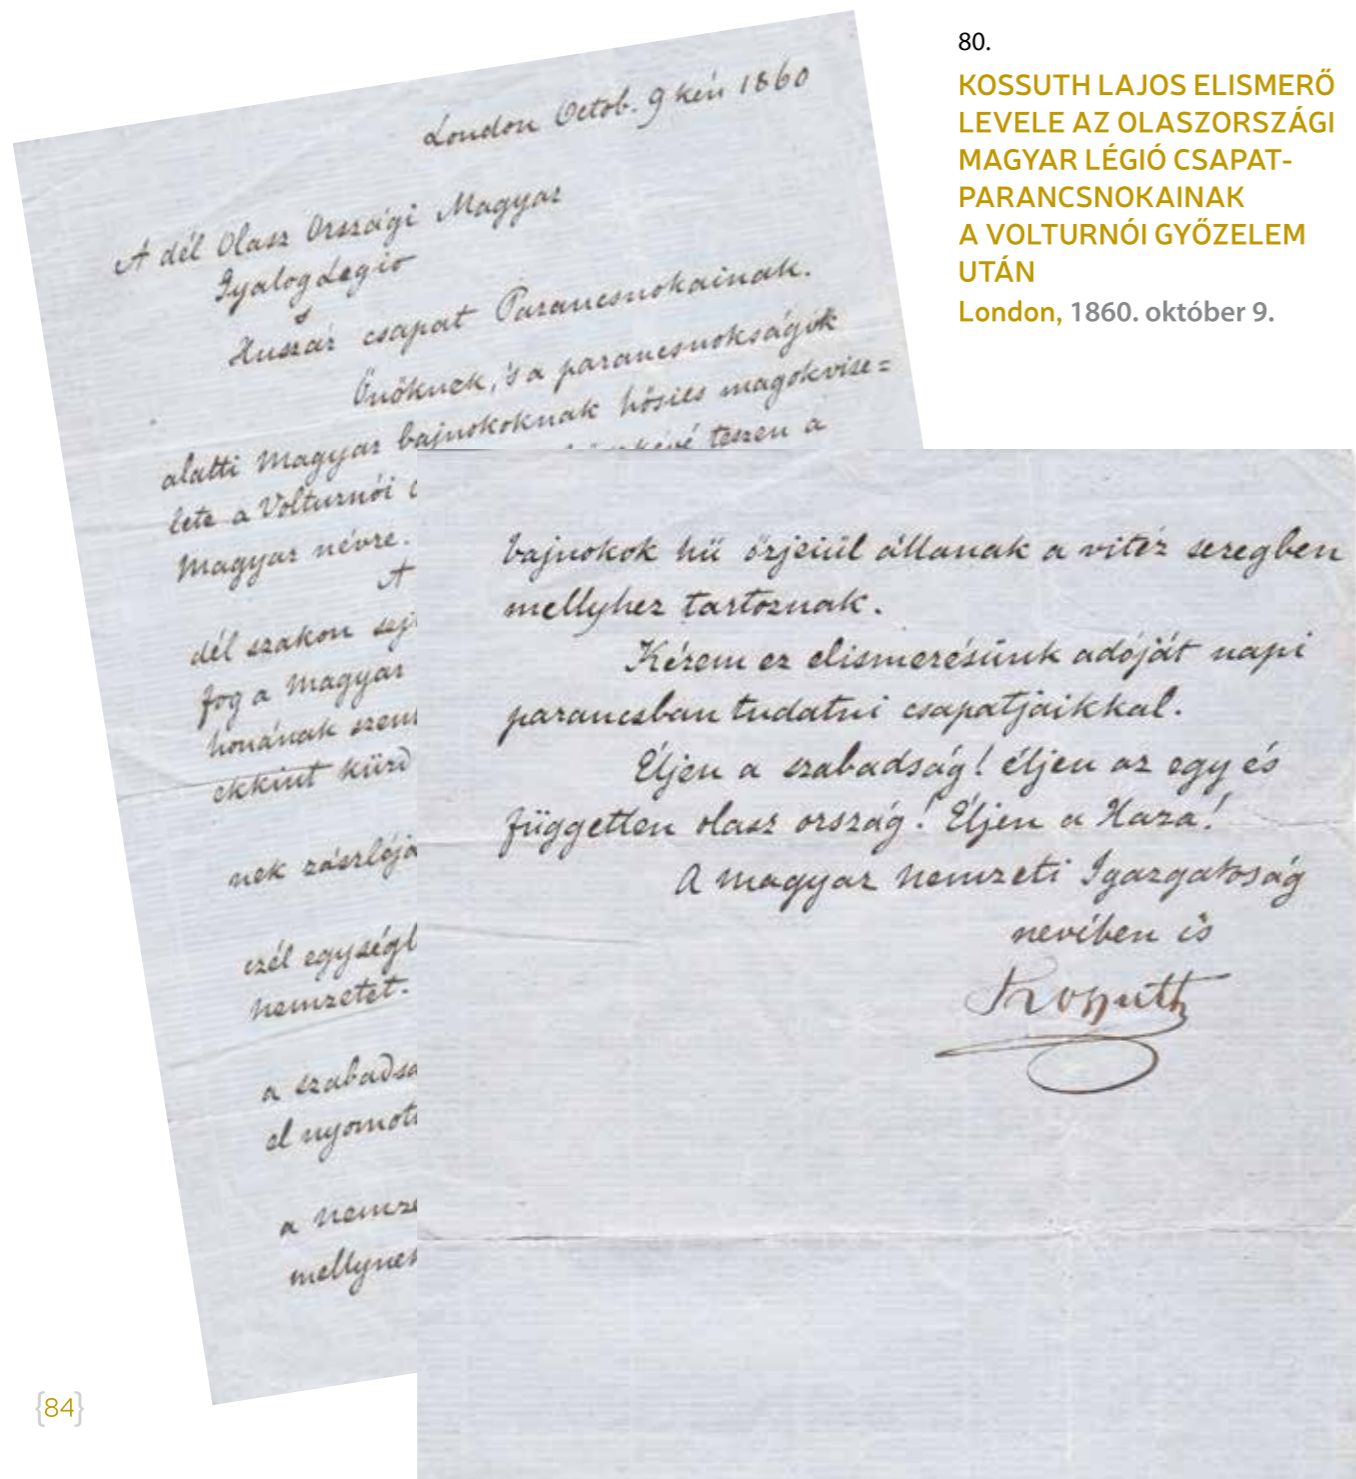 80.
KOSSUTH LAJOS ELISMERŐ
LEVELE AZ OLASZORSZÁGI
MAGYAR LÉGIÓ CSAPAT-
PARANCSNOKAINAK
A VOLTURNÓI GYŐZELEM
UTÁN
London, 1860. október 9.
London Octob. 9kén 1860
A dél Olasz Országi Magyar
Gyalog Legio
s
Huszár csapat Parancsnokainak.
Önöknek, 's a parancsnokságok
alatti magyar bajnokoknak hősies magokvise=
lete a Volturnói
teszen a
magyar névre.
A
dél szakon
fog a magyar
honának
ekkint küzd
nek
czél
nemzetet.
a
el
a
bajnokok hű őrjeiül állanak a vitéz seregben
mellyhez tartoznak.
Kérem ez elismerésünk adóját napi
parancsban tudatni csapatjaikkal.
Éljen a szabadság! éljen az egy és
független olasz ország! Éljen a Haza!
A magyar nemzeti Igazgatoság
nevében is
Kossuth
{84}